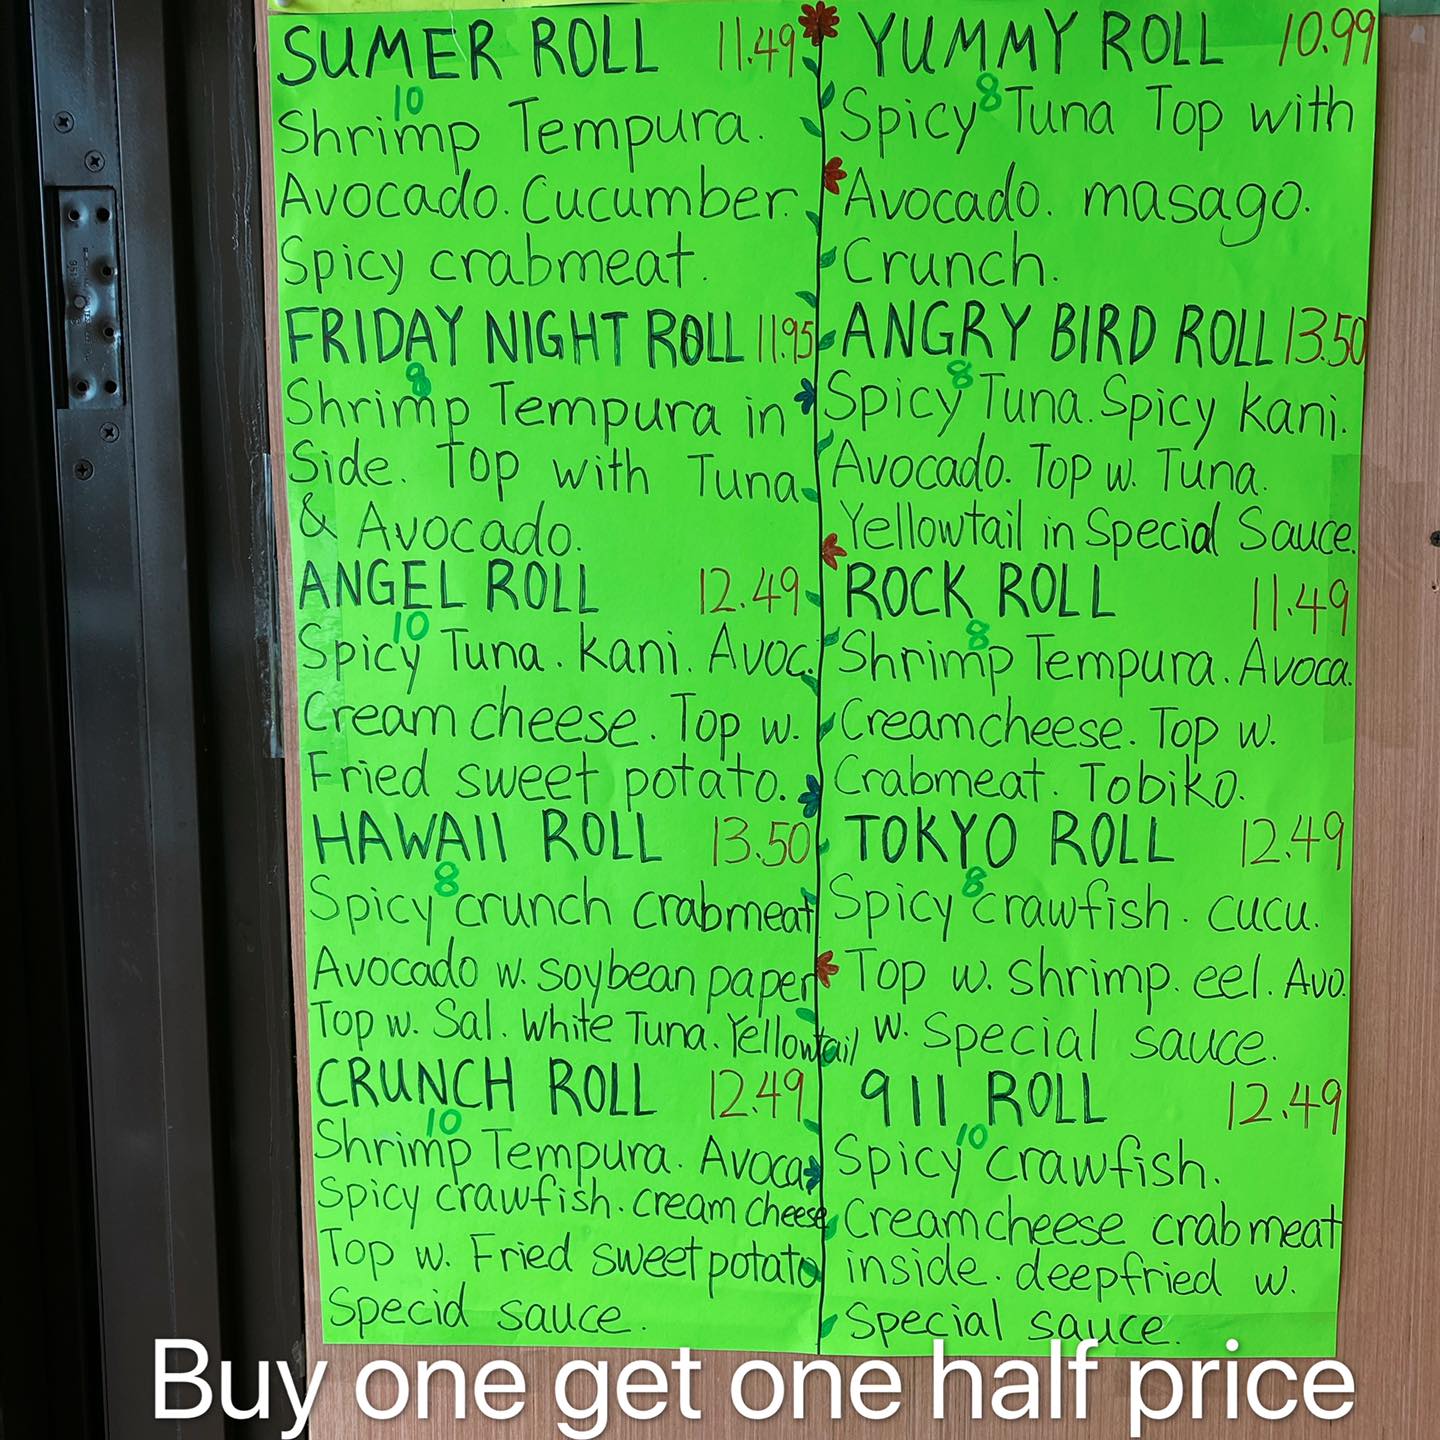 SUMER ROLL 11.49
10
Shrimp Tempura.
Avocado. Cucumber.
Spicy crabmeat.
FRIDAY NIGHT ROLL 11.95
8
Shrimp Tempura in
Side. Top with Tuna
& Avocado.
ANGEL ROLL 12.49
10
Spicy Tuna. kani. Avoc.
Cream cheese. Top w.
Fried sweet potato.
HAWAII ROLL 13.50
8
Spicy crunch crabmeat
Avocado w. soybean paper
Top w. Sal. White Tuna. Yellowtail
CRUNCH ROLL 12.49
10
Shrimp Tempura. Avoca.
Spicy crawfish. cream cheese
Top w. Fried sweet potato
Specid sauce.
YUMMY ROLL 10.99
8
Spicy Tuna Top with
Avocado. masago.
Crunch.
ANGRY BIRD ROLL 13.50
8
Spicy Tuna. Spicy kani.
Avocado. Top w. Tuna.
Yellowtail in Special Sauce.
ROCK ROLL 11.49
8
Shrimp Tempura. Avoca.
Creamcheese. Top w.
Crabmeat. Tobiko.
TOKYO ROLL 12.49
8
Spicy crawfish. cucu.
Top w. shrimp. eel. Avo.
w. Special sauce.
911 ROLL 12.49
10
Spicy crawfish.
Creamcheese crabmeat
inside. deepfried w.
Special sauce.
Buy one get one half price